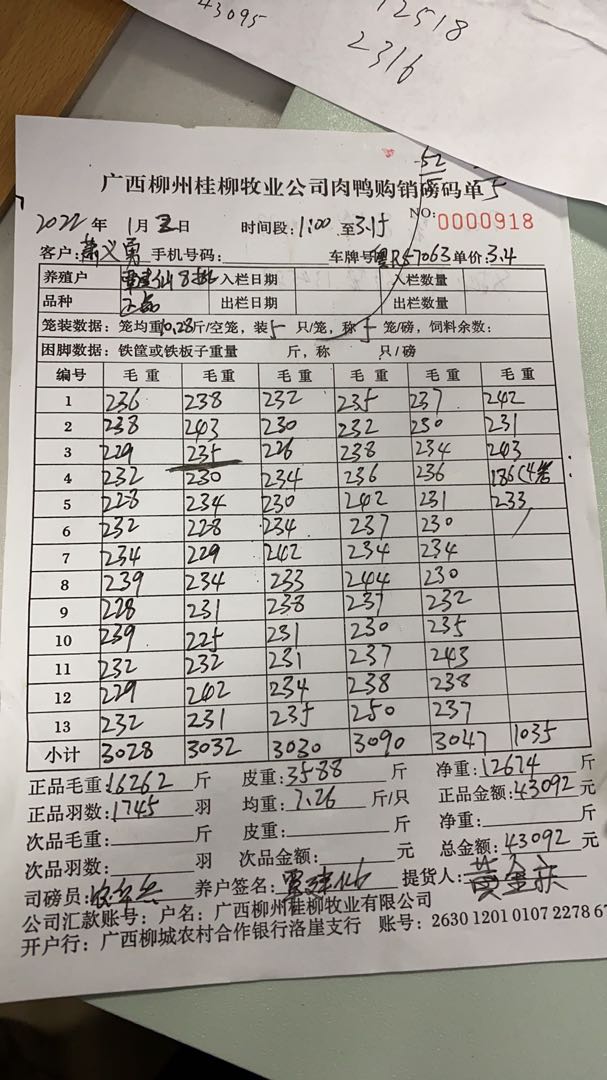 43095
12518
2316
52
5
广西柳州桂柳牧业公司肉鸭购销磅码单
NO: 0000918
2022 年 1月 日 时间段: 1:00 至 3.15
客户: 萧义勇 手机号码: 车牌号 粤R57063 单价: 3.4
养殖户 入栏日期 入栏数量
品种 正品 出栏日期 出栏数量
笼装数据: 笼均重10.28斤/空笼, 装5 只/笼, 称5 笼/磅, 饲料余数:
困脚数据: 铁筐或铁板子重量 斤, 称 只/磅
编号 毛重 毛重 毛重 毛重 毛重 毛重
1 236 238 232 235 237 242
2 238 243 230 232 230 231
3 229 235 226 238 234 243
4 232 230 234 236 236 186(4笼
5 228 234 230 242 231 233
6 232 228 234 237 230 /
7 234 229 242 234 234
8 239 234 233 244 230
9 228 231 238 237 232
10 239 225 231 230 235
11 232 232 231 237 243
12 229 242 234 238 238
13 232 231 235 250 237
小计 3028 3032 3030 3090 3047 1035
正品毛重: 16262 斤 皮重: 3588 斤 净重: 12674 斤
正品羽数: 1745 羽 均重: 7.26 斤/只 正品金额: 43092 元
次品毛重: 斤 皮重: 斤 净重: 斤
次品羽数: 羽 次品金额: 元 总金额: 43092 元
司磅员: 养户签名: 覃建仙 提货人: 黄金庆
公司汇款账号: 户名: 广西柳州桂柳牧业有限公司
开户行: 广西柳城农村合作银行洛崖支行 账号: 2630 1201 0107 2278 67